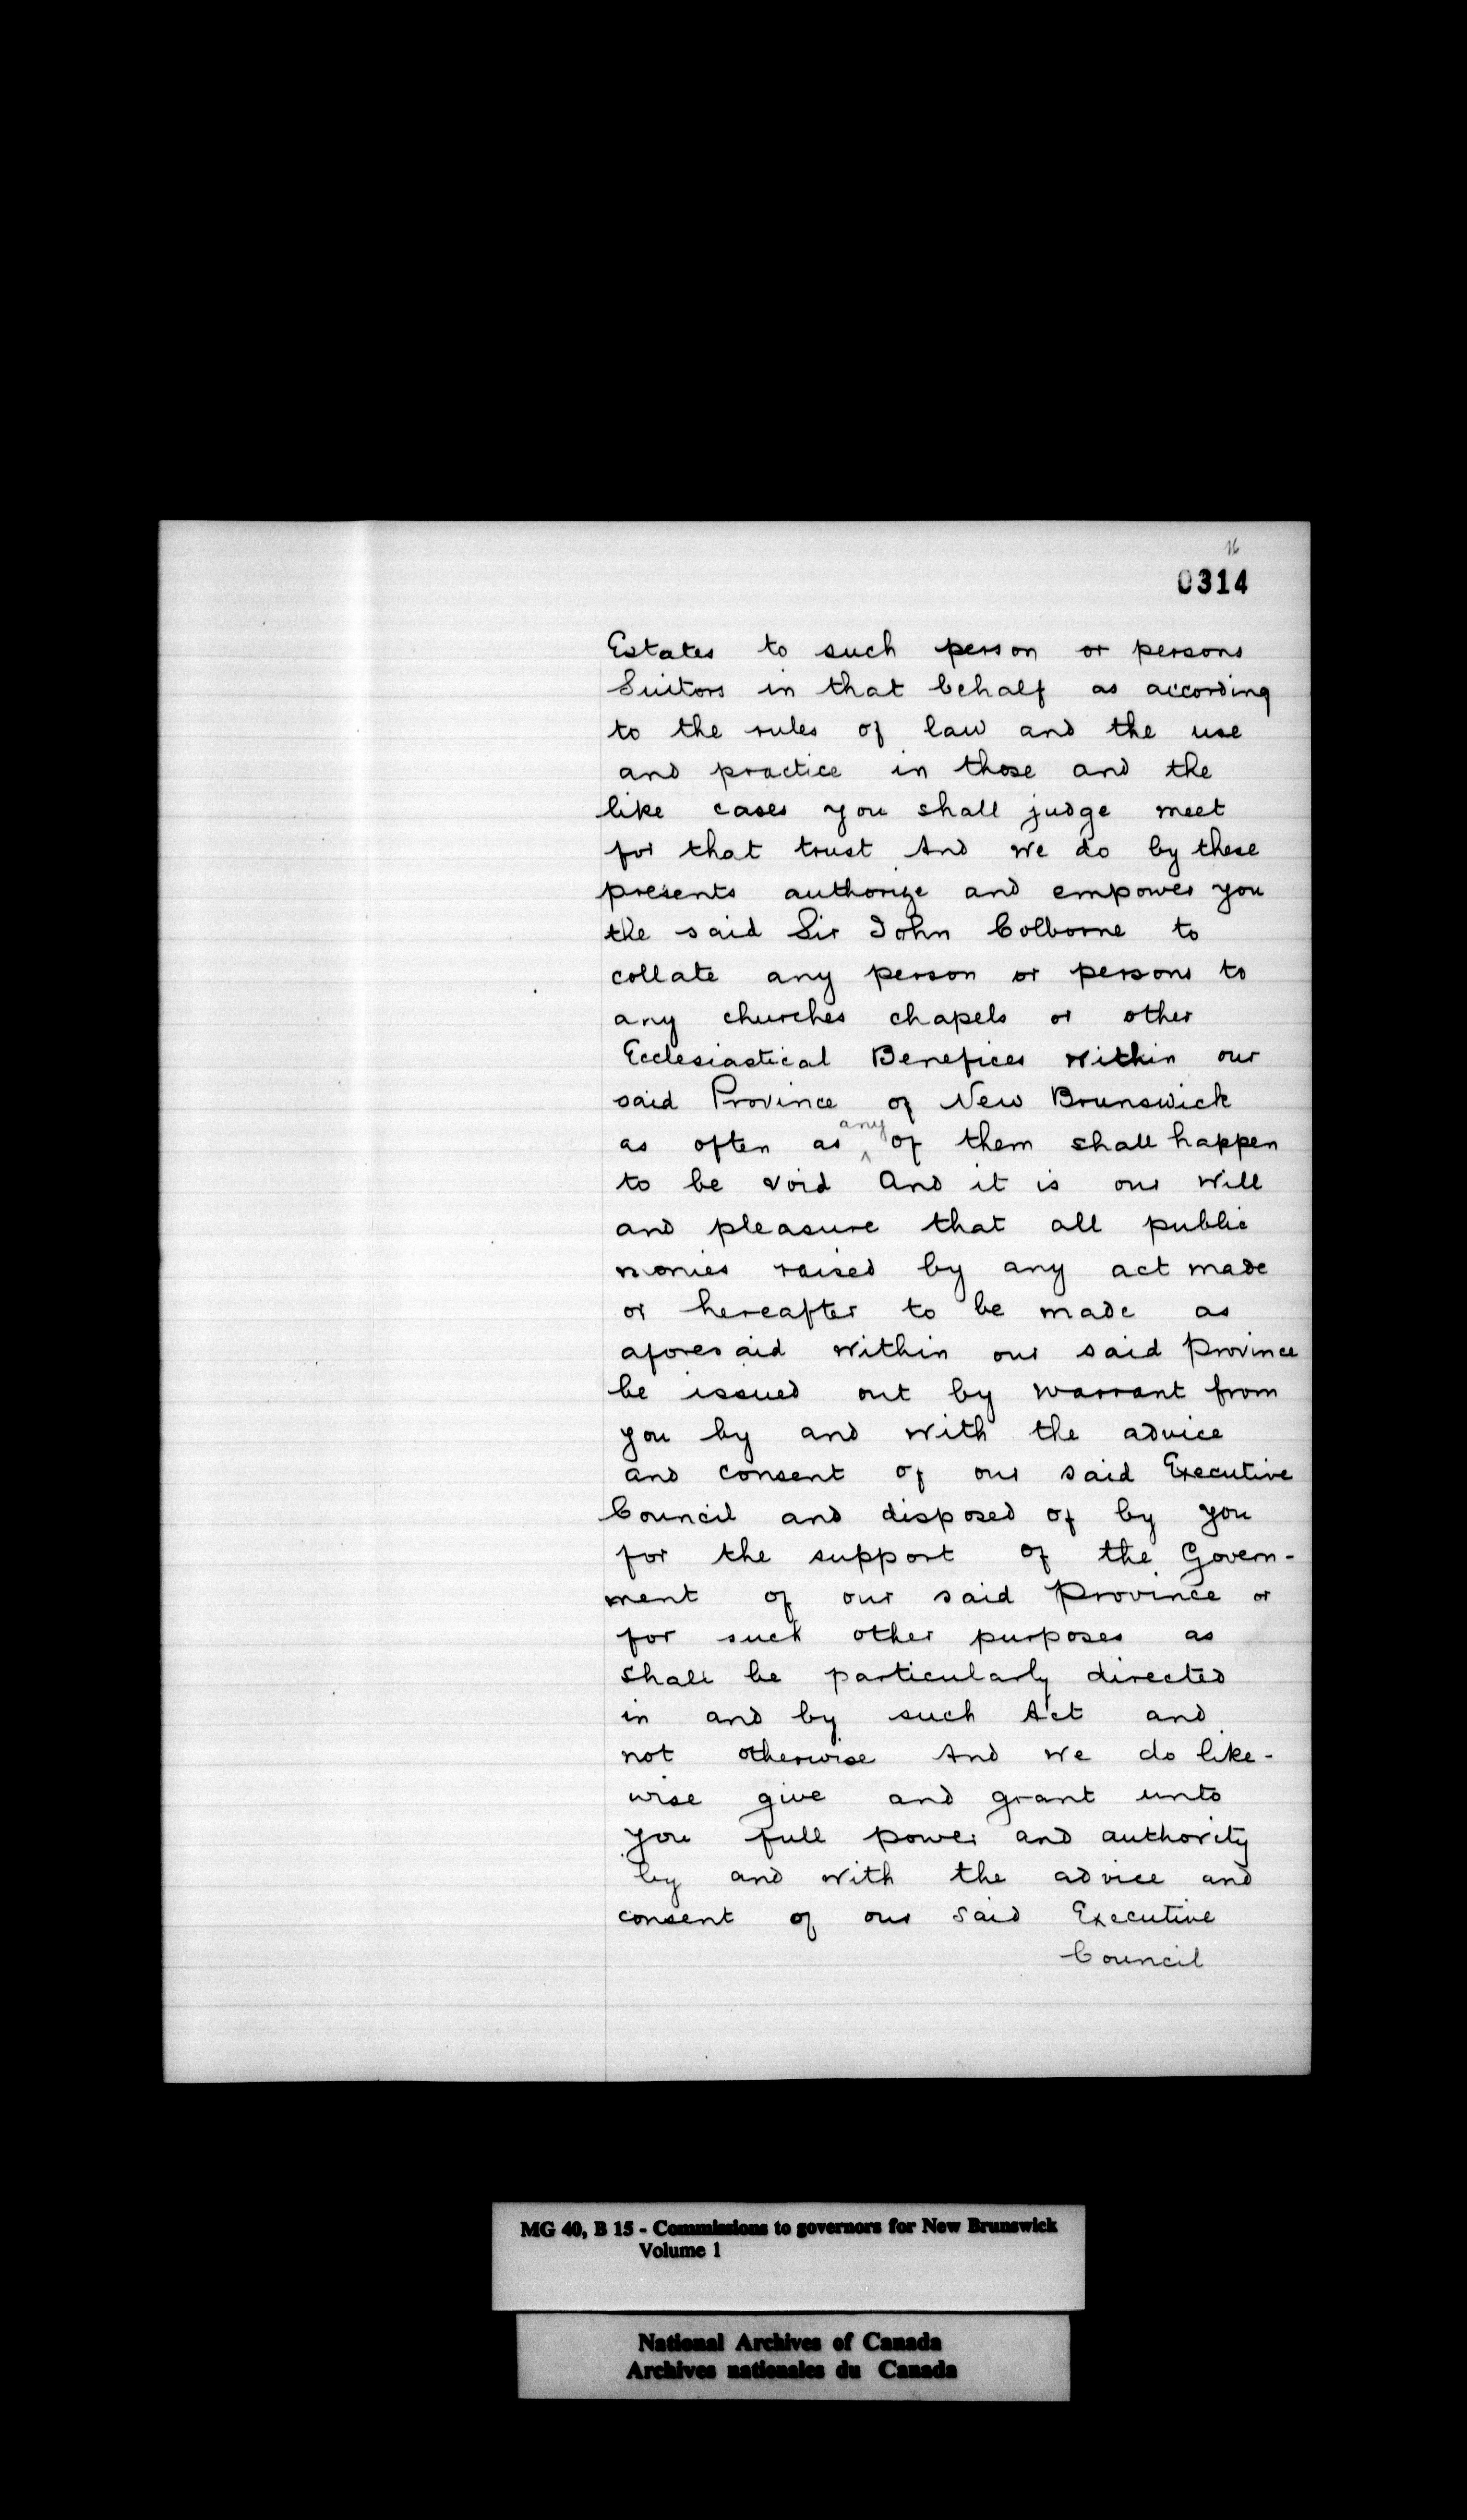 16
0314
Estates to such person or persons
Suitors in that behalf as according
to the rules of law and the use
and practice in those and the
like cases you shall judge meet
for that trust And we do by these
presents authorize and empower you
the said Sir John Colborne to
collate any person or persons to
any churches chapels or other
Ecclesiastical Benefices within our
said Province of New Brunswick
as often as any of them shall happen
to be void And it is our will
and pleasure that all public
monies raised by any act made
or hereafter to be made as
aforesaid within our said Province
be issued out by warrant from
you by and with the advice
and consent of our said Executive
Council and disposed of by you
for the support of the Govern-
ment of our said Province or
for such other purposes as
shall be particularly directed
in and by such Act and
not otherwise And we do like-
wise give and grant unto
you full power and authority
by and with the advice and
consent of our said Executive
Council
MG 40, B 15 - Commissions to governors for New Brunswick
Volume 1
National Archives of Canada
Archives nationales du Canada